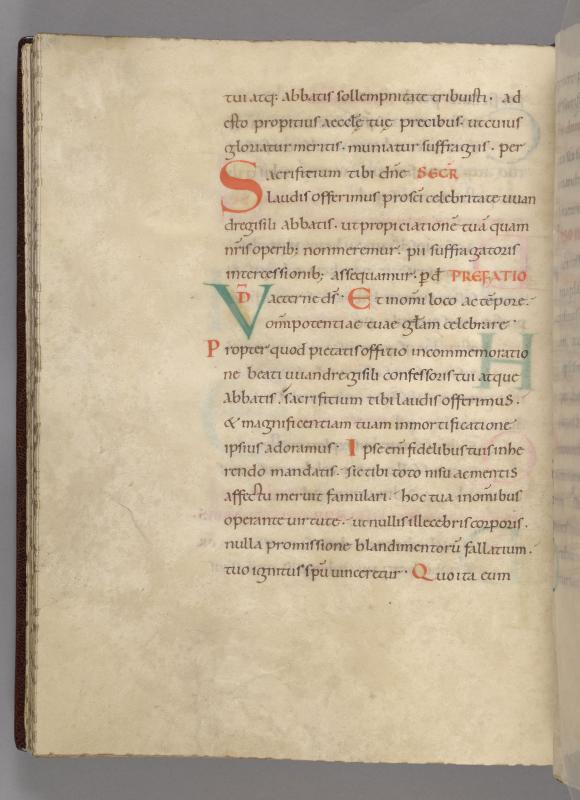 tui atq: abbatis sollempnitate tribuisti· ad
esto propitius aecclę tuę precibus· ut cuius
gloriatur meritis· muniatur suffragiis· per
Sacrifitium tibi dn̄e SECR̄
Laudis offerimus pro sc̄i celebritate uuan
dregisili abbatis· ut propiciationē tuā quam
nr̄is operib; non meremur· pii suffragatoris
intercessionib; assequamur· p̄ d̄ PREFATIO
VD̄ aeterne ds̄· Et in om̄i loco ac tēpore·
om̄ipotentiae tuae gl̄am celebrare·
Propter quod pietatis offitio in commemoratio
ne beati uuandregisili confessoris tui atque
abbatis· sacrifitium tibi laudis offerimus·
& magnificentiam tuam in mortificatione
ipsius adoramus· Ipse eni᷆ fidelibus tuis inhe
rendo mandatis· sic tibi toto nisu ac mentis
affectu meruit famulari· hoc tua in om̄ibus
operante uirtute· ut nullis illecebris corporis·
nulla promissione blandimentorū fallatium·
tuo ignitus sp̄u uinceretur· Quo ita cum